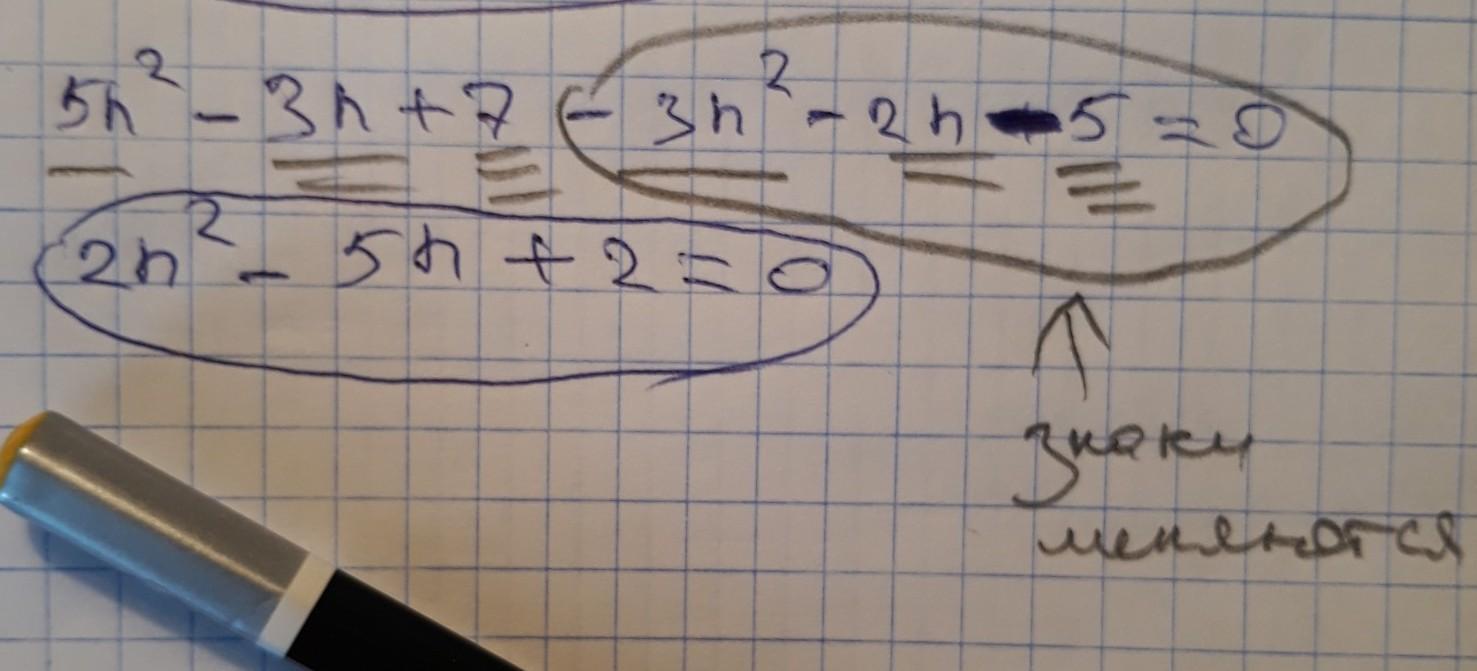 5n² - 3n + 7 - 3n² - 2n - 5 = 0
2n² - 5n + 2 = 0
знаки
меняются